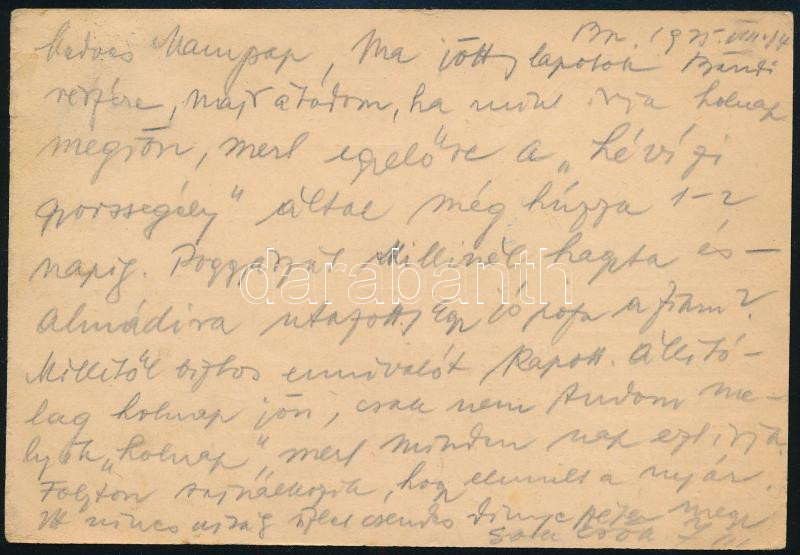 Bp. 1925. VIII. 14
Kedves Mampap, Ma jött lapotok Bandi
részére, majd átadom, ha mint írja holnap
megjön, mert egyelőre a „hévízi
gyorssegély" által még húzza 1-2
napig. Poggyászát Millinél hagyta és
almádira utazott. Egy jó pofa a fiam?
Millitől biztos ennivalót kapott. Állító-
lag holnap jön, csak nem tudom me-
lyik „holnap", mert minden nap ezt írja.
Folyton sajnálkozik, hogy elmúlt a nyár.
Itt nincs ujság üzlet csendes
darabanth